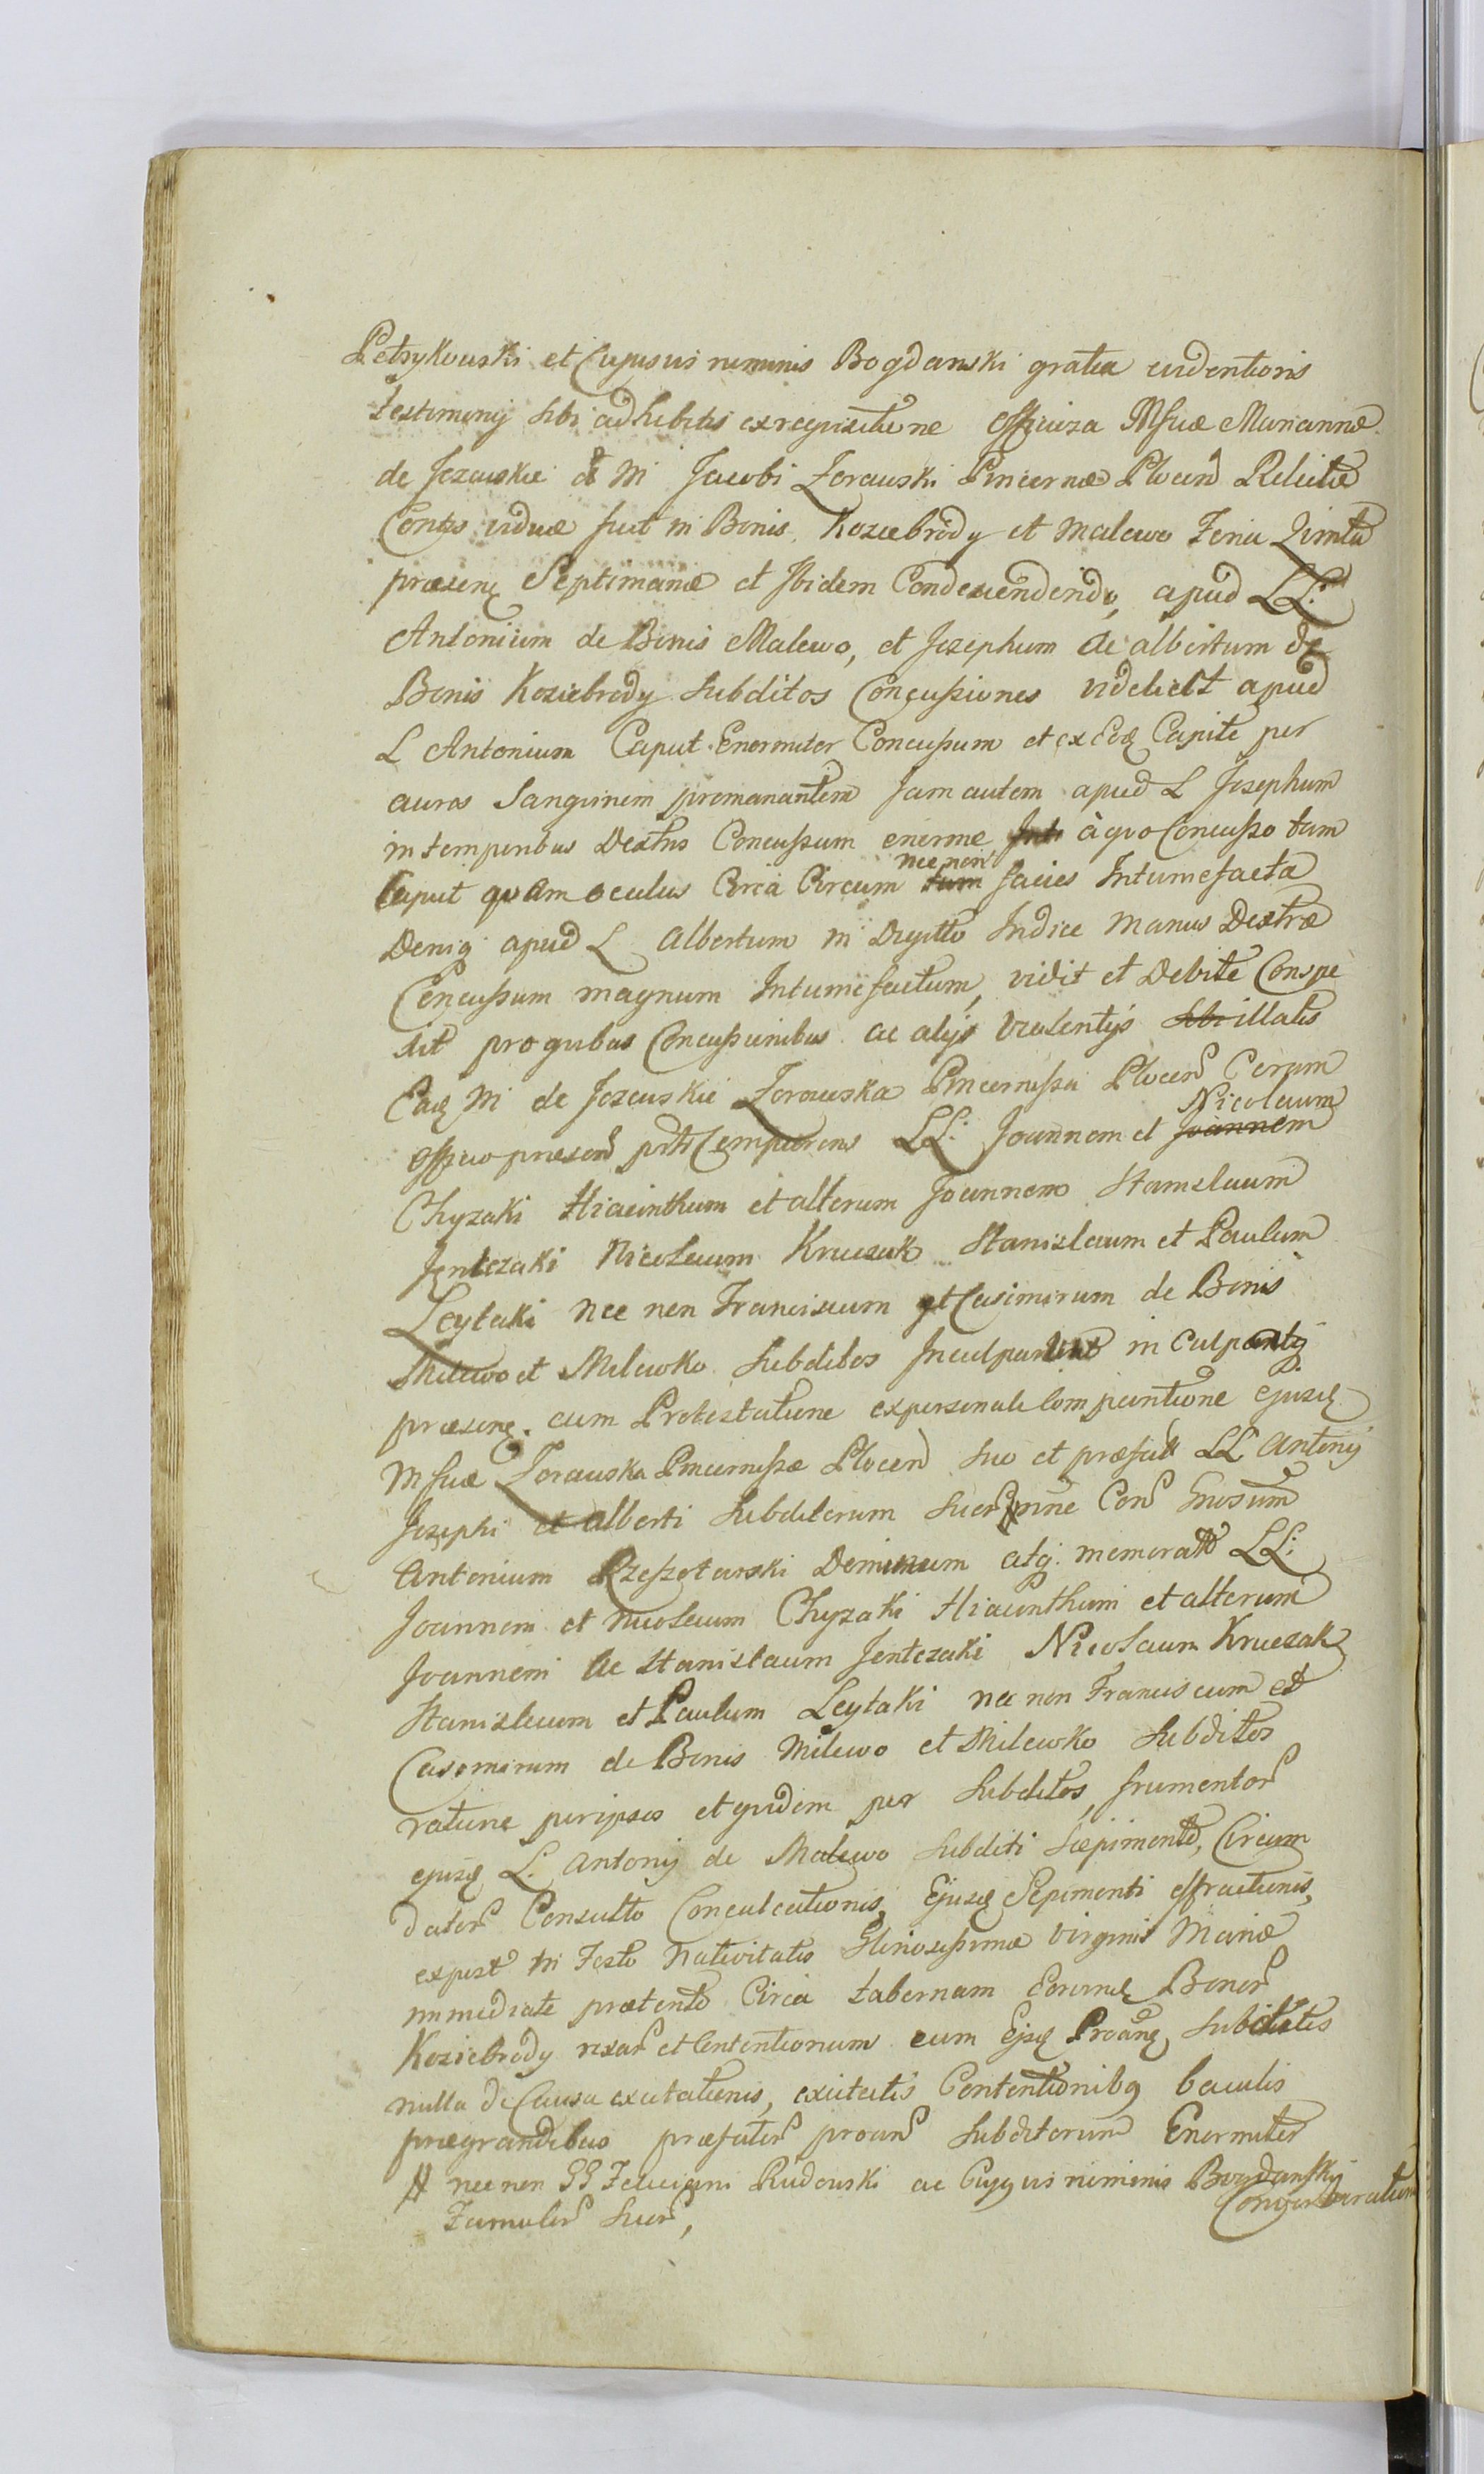 Petrykowski et Cujusvis nominis Bogdanski gratia evidentioris
testimonij sibi adhibitis ex requisitione Mfcae Mariannae
de Jezewskie M Jacobi Zorawski Pincernae Plocen Relictae
Contis viduae fuit in Bonis Koziebrody et Malewo Feria
praesen Septimanae et Ibidem Condescendendo, apud LL:
Antonium de Bonis Malewo, et Josephum ac albertum de
Bonis Koziebrody Subditos Concussiones videlicet apud
L Antonium Caput Enormiter Concussum et ex Eodq Capite per
aures Sanguinem promanantem Jam autem apud L Josephum
in temporibus Dextris Concussum enorme à quo Concusso tam
Caput quam oculus Circa Circum nec non facies Intumefacta
Deniq apud L Albertum in Digitto Indice Manus Dextrae
Concussum magnum Intumefactum, vidit et Debite Conspe
xit pro quibus Concussionibus ac alijs violentijs sibi illatis
Eadq M de Jezewskie Zorawska Pincernissa Plocen Coram
officio praesen LL: Joannem et Joannem Nicolaum
Chyzaki Hiacinthum et alterum Joannem Stanislaum
Jentczaki Nicolaum Kruczak Stanislaum et Paulum
Leytaki nec non Franciscum et Casimirum de Bonis
Milewo et Milewko Subditos Inculpavit in Culpatq
praesenq. cum Protestatione ex personali Comparitione ejusdq
Mfcae Zorawska Pincernissae Plocen suo et praefatt LL Antonij
Josephi et Alberti Subditorum Suor # nine Con Gnosum
Antonium Rzeszotarski Dominum atq memoratt LL:
Joannem et Nicolaum Chyzaki Hiacinthum et alterum
Joannem ac Stanislaum Jentczaki Nicolaum Kruczak
Stanislaum et Paulum Leytaki nec non Franciscum et
Casimirum de Bonis Milewo et Milewko Subditos
ratione per ipsos et quidem per Subditos, frumentor
ejusdq L. Antonij de Malewo Subditi Saepimento, Circum
dator Consulto Conculcationis, Ejusdq Sepimenti effractionis,
expost in Festo Nativitatis Gloriosissimae Virginis Mariae
immediate praeterito Circa tabernam Eorumdq Bonor
Koziebrody rixar et Contentionum cum Ejsdq Proanq Subditis
nulla de Causa excitationis, excitatis Contentionibq baculis
praegrandibus praefator proan Subditorum Enormiter
# nec non GG Feliciani Rudowski ac Cujusvis nominis Bogdanski
Famulor Suor,